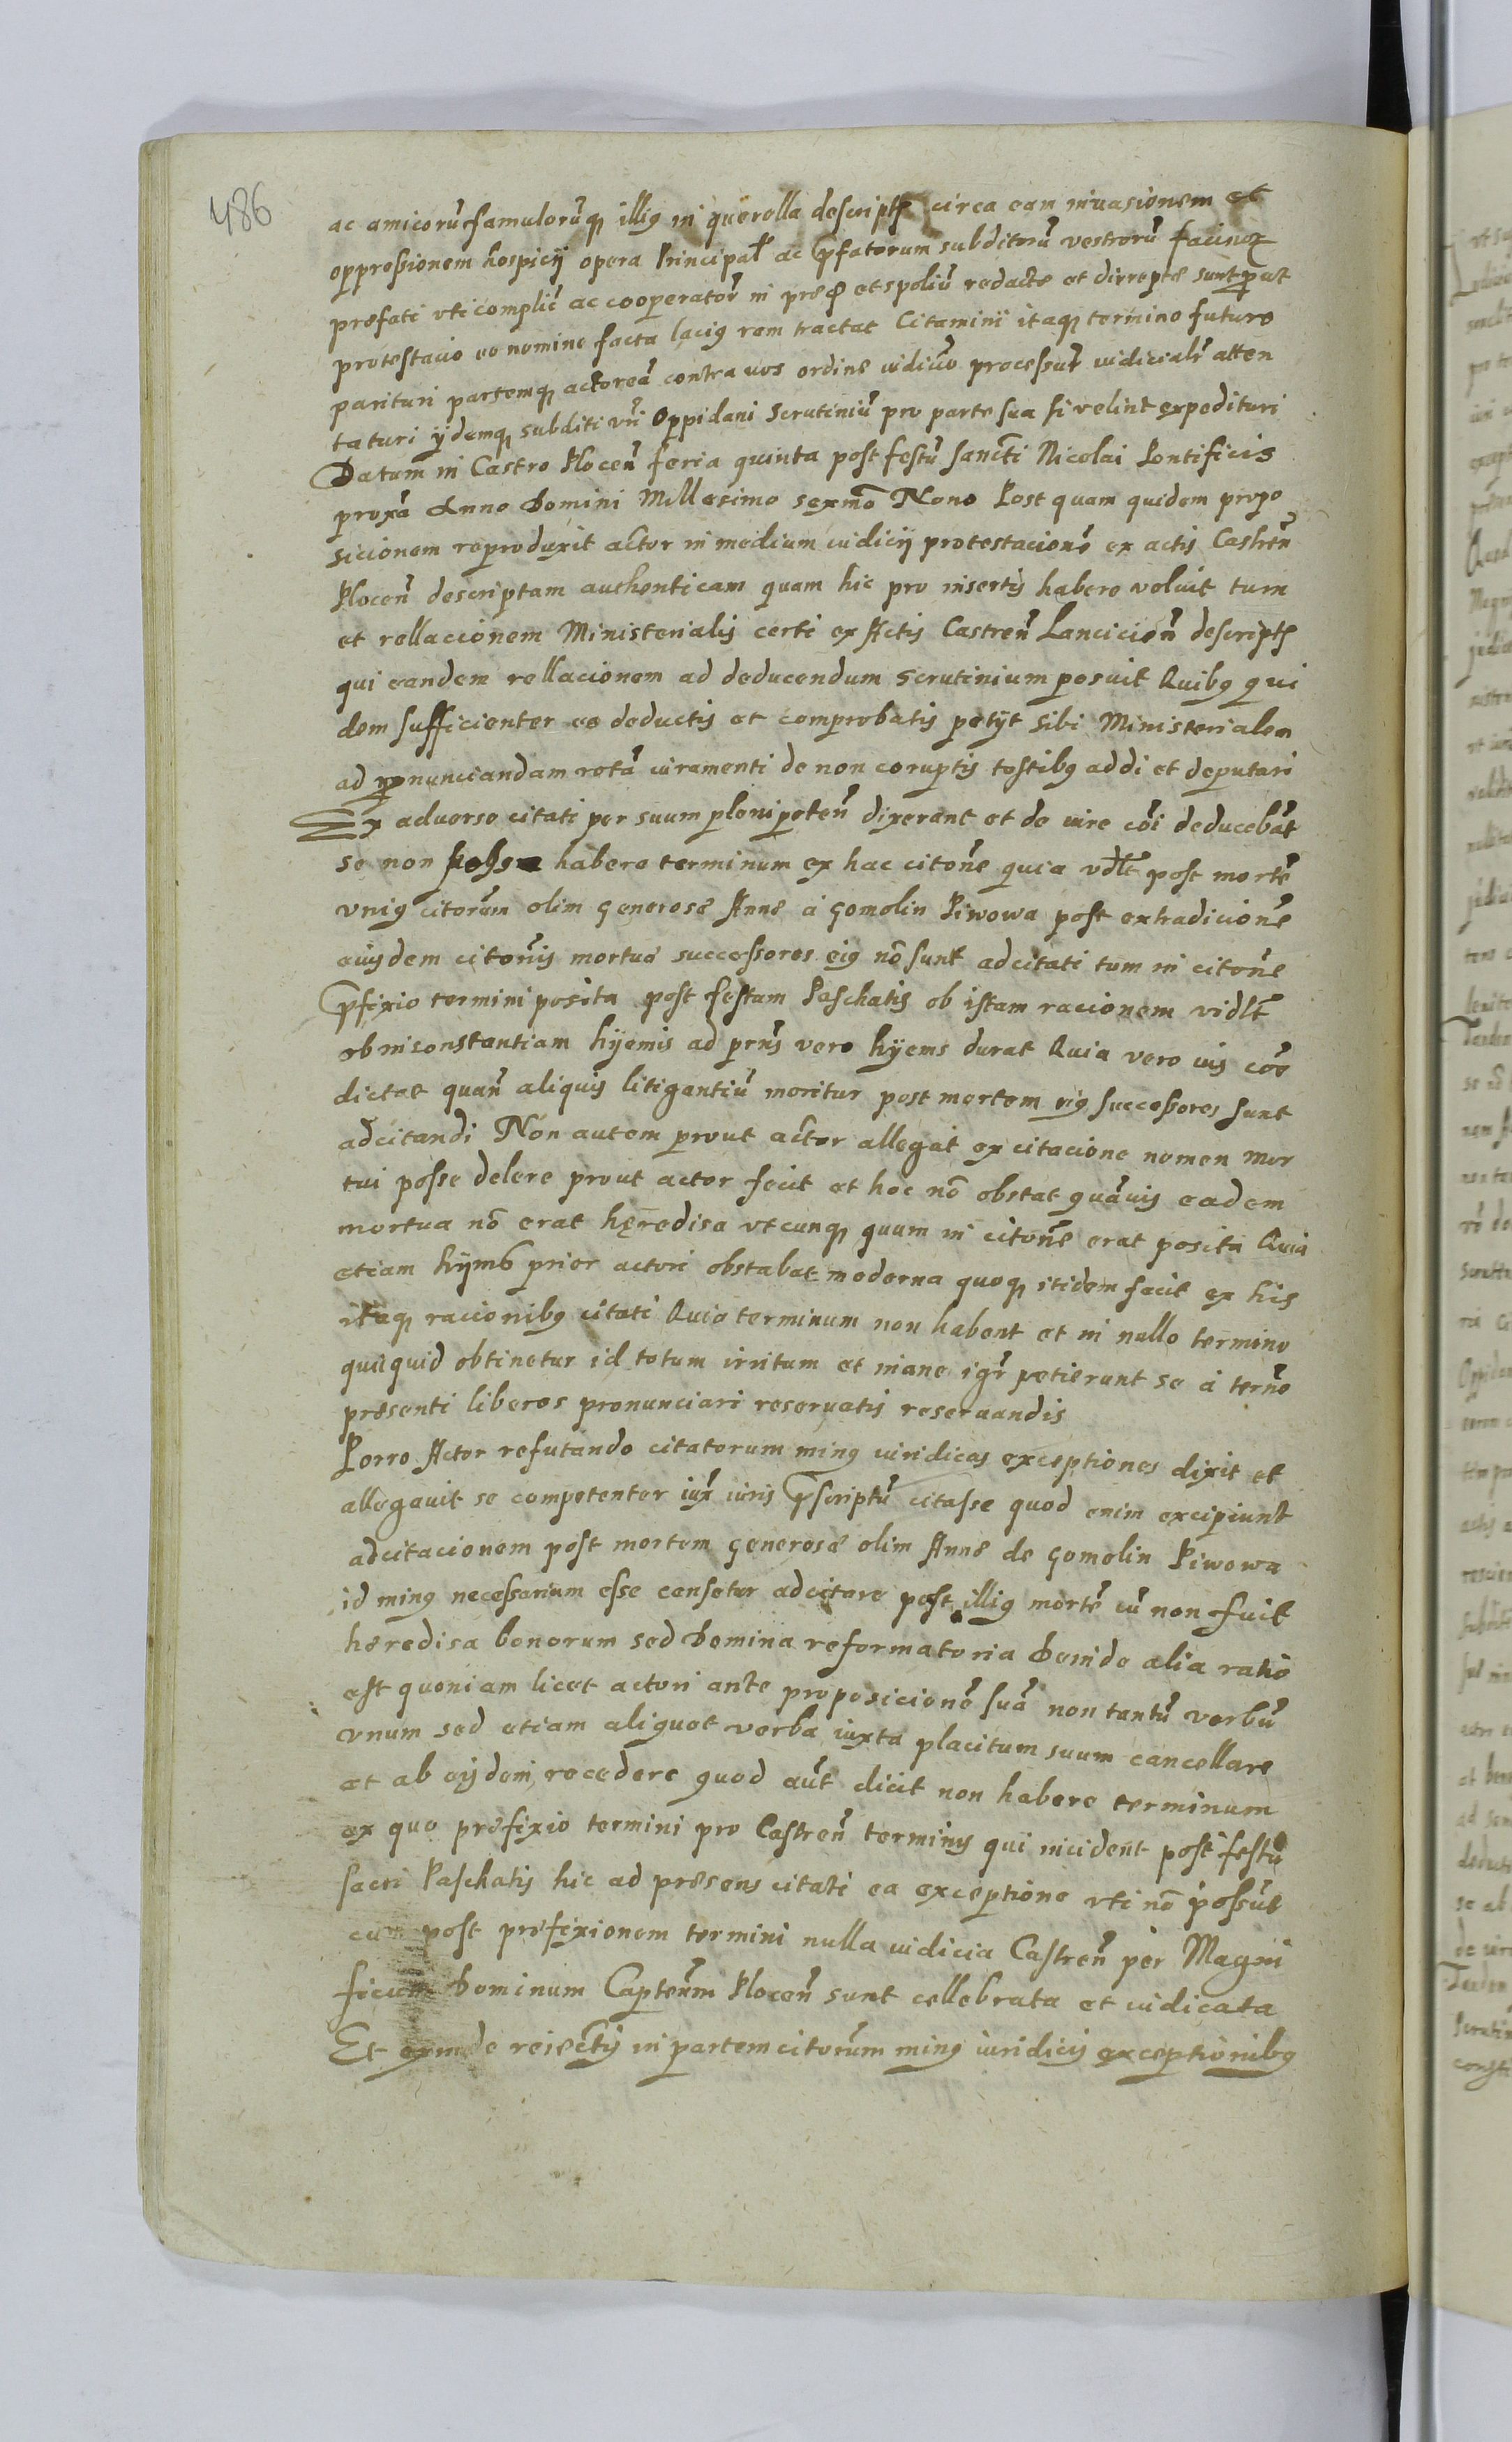 486
ac amicorū famulorūq illiq in querella descripti circa eam inuasionem et
oppressionem hospicij opera Principal ac pfatorum subditorū vestrorū
præfati vti complic̄ ac cooperator̄ in et spoliū redactæ et direptæ sunt put
protestacio eo nomine facta laciq rem tractat Citamini itaq termino futuro
parituri partemq actoreā contra vos ordine iudicio processur̄ iudicialr̄ atten
taturi ijdemq subditi vr̄i Oppidani Scrutiniū pro parte sua si velint expedituri
Datum in Castro Plocen̄ feria quinta post festū sancti Nicolai Pontificis
proxā Anno Domini Millesimo sexmo Nono Post quam quidem propo
sicionem reproduxit actor in medium iudicij protestacionē ex actis Castren̄
Plocen̄ descriptam authenticam quam hic pro insertis habere voluit tum
et rellacionem Ministerialis certi ex Actis Castren̄ Lancicien̄ descript
qui eandem rellacionem ad deducendum scrutinium posuit Quibq qui
dem sufficienter eo deductis et comprobatis petijt sibi Ministerialem
ad pronunciandam rotā iuramenti de non coruptis testibq addi et deputari
Ex aduerso citati per suum plenipoten̄ dixerant et de iure cōi deducebāt
se non habere terminum ex hac citon̄e quia vdlt post mortē
vniq citorum olim generosæ Annæ a Gomolin Piwowa post extradicionē
eiusdem citon̄is mortuæ successores eiq nō sunt adcitati tum in citon̄e
pfixio termini posita post festum Paschatis ob istam racionem vidlt
ob inconstantiam hijemis ad prn̄s vero hijems durat Quia vero ius cōe
dictat quan̄ aliquis litigantiū moritur post mortem eiq successores sunt
adcitandi Non autem prout actor allegat ex citacione nomen mor
tui posse delere prout actor fecit et hoc nō obstat quāuis eadem
mortua nō erat hęredisa vtcunq quum in citon̄e erat posita Quia
etiam hijms prior actori obstabat moderna quoq itidem facit ex his
itaq racionibq citati Quia terminum non habent et in nullo termino
quicquid obtinetur id totum irritum et inane igr̄ petierunt se a tern̄o
præsenti liberos pronunciari reseruatis reseruandis
Porro Actor refutando citatorum minq iuridicas exceptiones dixit et
allegauit se competenter iux iuris pscriptū citasse quod enim excipiunt
adcitacionem post mortem generosæ olim Annæ de Gomolin Piwowa
id minq necessarium esse censetur adcitare post illiq mortē cū non fuit
hæredisa bonorum sed Domina reformatoria Deinde alia ratio
est quoniam licet actori ante proposicionē suā non tantū verbū
vnum sed etiam aliquot verba iuxta placitum suum cancellare
et ab eijsdem recedere quod aut̄ dicit non habere terminum
ex quo præfixio termini pro Castren̄ terminis qui incident post festū
sacri Paschatis hic ad præsens citati ea exceptione vti nō possūt
cum post præfixionem termini nulla iudicia Castren̄ per Magni
ficum Dominum Capten̄m Plocen̄ sunt cellebrata et iudicata
Et exinde reiectis in partem citorum minq iuridicis exceptionibq